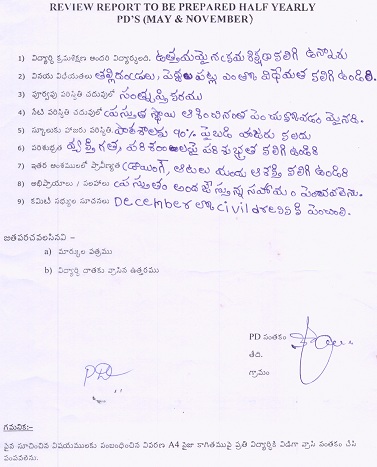 REVIEW REPORT TO BE PREPARED HALF YEARLY
PD'S (MAY & NOVEMBER)
1) విద్యార్థి క్రమశిక్షణ అందరి విద్యార్థులది. ఉత్తమమైన క్రమశిక్షణ కలిగి ఉన్నారు
2) వినయ విధేయతలు తల్లిదండ్రులు, పెద్దల పట్ల ఎంతో విధేయత కలిగి ఉండిరి.
3) పూర్వపు పరిస్థితి చదువులో సంతృప్తి కరము
4) నేటి పరిస్థితి చదువులో ప్రస్తుత స్థాయి ఆశించినంత
5) స్కూలుకు హాజరు పరిస్థితి. పాఠశాలకు 90% పైబడి హాజరు కలదు
6) పరిశుభ్రత వ్యక్తిగత, పరిసరాలపై పరిశుభ్రత కలిగి ఉండిరి
7) ఇతర అంశములలో ప్రావీణ్యత డ్రాయింగ్, ఆటలు యందు ఆశక్తి కలిగి ఉండిరి
8) అభిప్రాయాలు / సలహాలు ప్రస్తుతం అందజేస్తున్న సహాయం పెంచవలెను.
9) కమిటీ సభ్యుల సూచనలు December లో civil dress కి పెంచాలి.
జతపరచవలసినవి –
a) మార్కుల పత్రము
b) విద్యార్థి దాతకు వ్రాసిన ఉత్తరము
PD సంతకం
తేది.
గ్రామం
PD
గమనిక:-
పైన సూచించిన విషయములకు సంబంధించిన వివరణ A4 సైజు కాగితముపై ప్రతి విద్యార్థికి విడిగా వ్రాసి సంతకం చేసి
పంపవలెను.